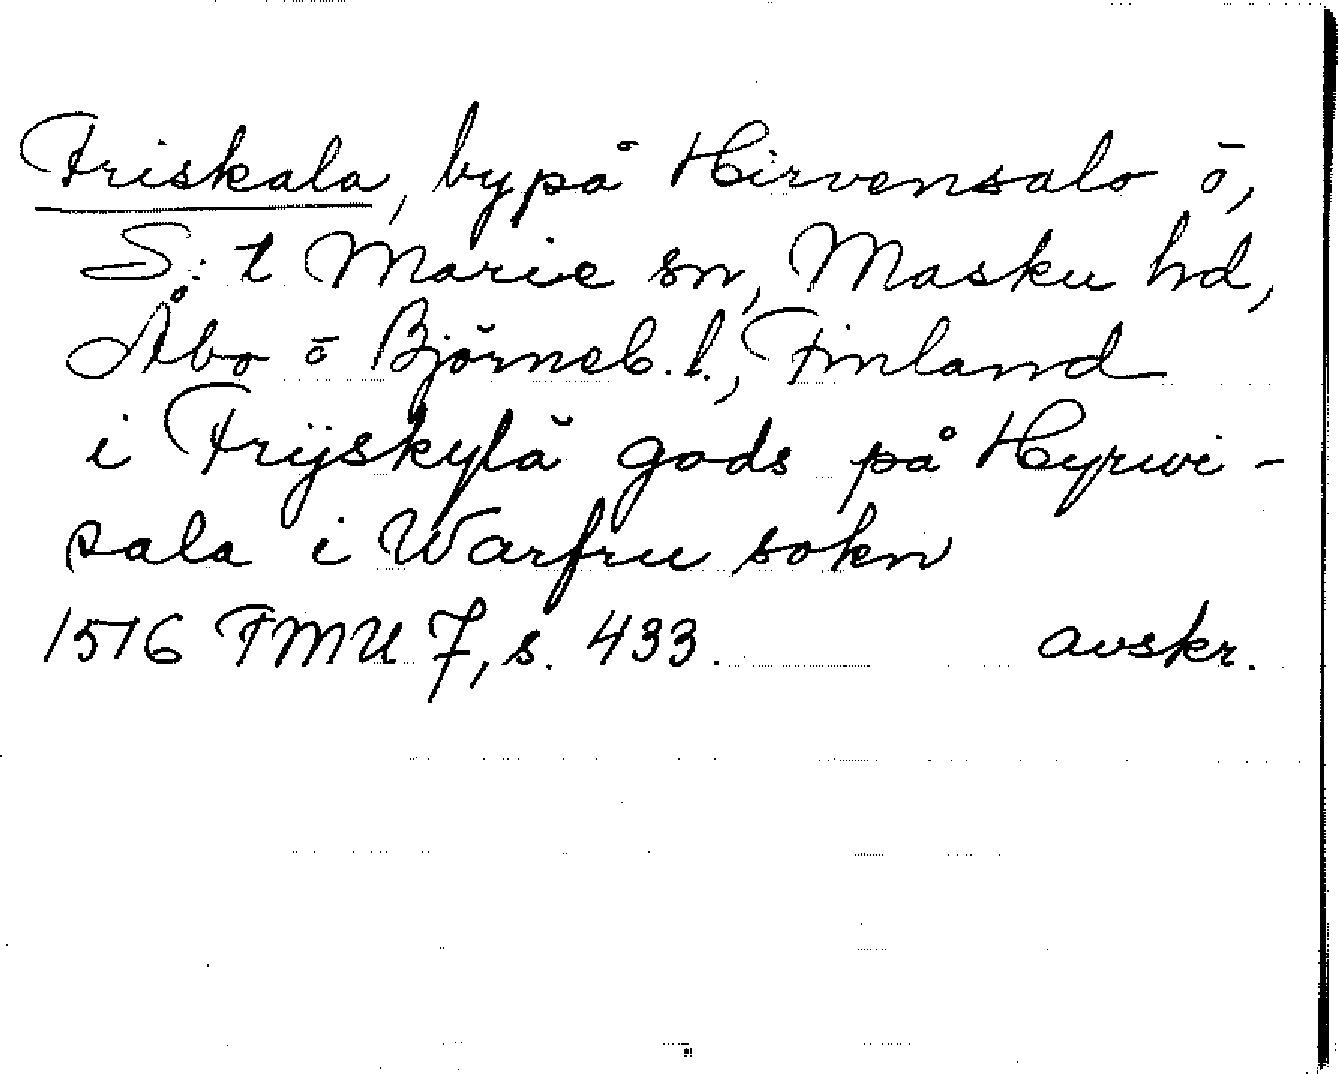 Friskala, by på Hirvensalo ö,
S:t Marie sn, Masku hd,
Åbo ō Björneb. l., Finland
i Frijskylä gods på Hyrwi-
sala i Warfru sokn
1516 FMU 7, s. 433. avskr.